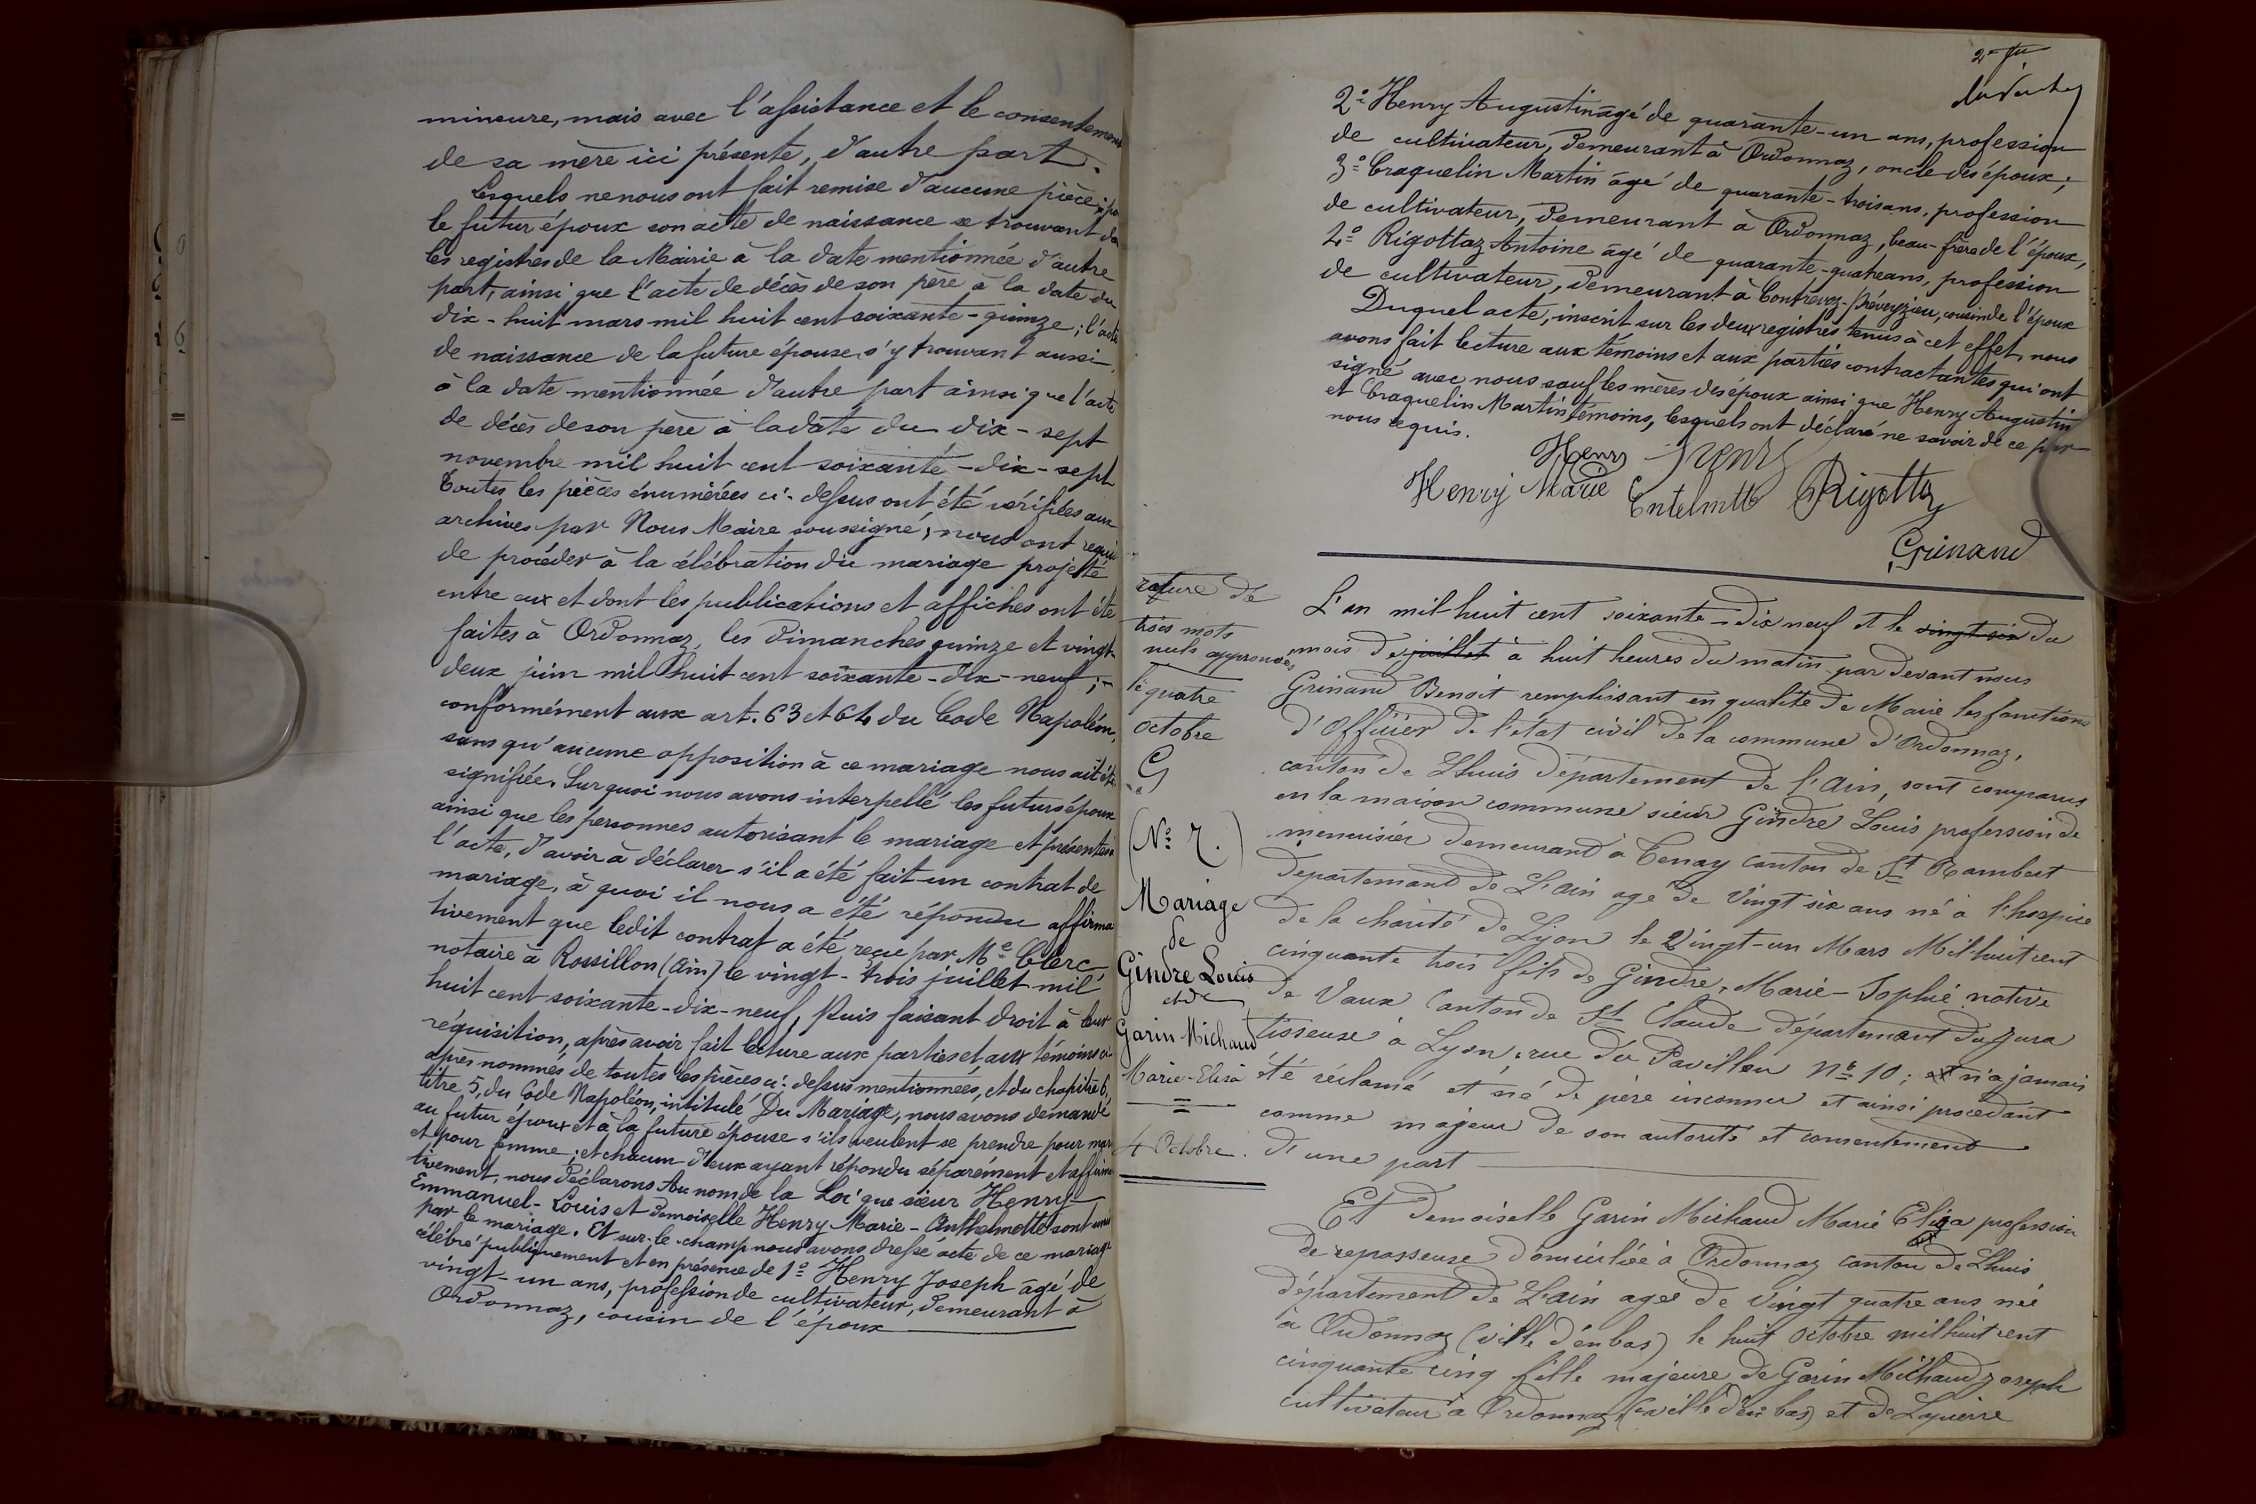 mineure, mais avec l'assistance et le consentement
de sa mère ici présente, d'autre part.
Lesquels ne nous ont fait remise d'aucune pièce;
le futur époux son acte de naissance se trouvant
les registres de la Mairie à la date mentionnée d'autre
part, ainsi que l'acte de décès de son père à la date du
dix-huit mars mil huit cent soixante-quinze; l'acte
de naissance de la future épouse, s'y trouvant aussi
à la date mentionnée d'autre part ainsi que l'acte
de décès de son père à la date du dix-sept
novembre mil huit cent soixante-dix-sept
Toutes les pièces énumérées ci-dessus ont été vérifiées aux
archives par Nous Maire soussigné; nous ont requis
de procéder à la célébration du mariage projetté
entre eux et dont les publications et affiches ont été
faites à Ordonnaz, les Dimanches quinze et vingt-
deux juin mil huit cent soixante-dix-neuf;-
conformément aux art. 63 et 64 du Code Napoléon,
sans qu'aucune opposition à ce mariage nous ait été
signifiée. Sur quoi nous avons interpellé les futurs époux
ainsi que les personnes autorisant le mariage et présentes à
l'acte, d'avoir à déclarer s'il a été fait un contrat de
mariage, à quoi il nous a été répondu affirma
tivement que ledit contrat a été reçu par Me Clerc
notaire à Rossillon (Ain) le vingt-trois juillet mil
huit cent soixante-dix-neuf, Puis faisant droit à leur
réquisition, après avoir fait lecture aux parties et aux témoins ci-
après nommés de toutes les pièces ci-dessus mentionnées, et du chapitre 6,
titre 5, du Code Napoléon, intitulé Du Mariage, nous avons demandé
au futur époux et à la future épouse s'ils veulent se prendre pour mari
et pour femme; et chacun d'eux ayant répondu séparément et affirma
tivement, nous déclarons Au nom de la Loi que sieur Henry
Emmanuel-Louis et demoiselle Henry Marie-Anthelmette sont unis
par le mariage. Et sur-le-champ nous avons dressé acte de ce mariage
célébré publiquement et en présence de 1° Henry Joseph âgé de
vingt-un ans, profession de cultivateur, demeurant à
Ordonnaz, cousin de l'époux
2° Henry Augustin âgé de quarante-un ans, profession
de cultivateur, demeurant à Ordonnaz, oncle des époux;
3° Craquelin Martin âgé de quarante-trois ans, profession
de cultivateur, demeurant à Ordonnaz, beau-frère de l'époux,
4° Rigottaz Antoine âgé de quarante-quatre ans, profession
de cultivateur, demeurant à Contrevoz-Préveyzieu, cousin de l'époux
Duquel acte, inscrit sur les deux registres tenus à cet effet, nous
avons fait lecture aux témoins et aux parties contractantes qui ont
signé avec nous sauf les mères des époux ainsi que Henry Augustin
et Craquelin Martin témoins, lesquels ont déclaré ne savoir de ce par
nous requis.
Henry
Henry Marie Entelmtte Rigotta
Grinand
rature de
trois mots
nuls approuvés
le quatre
octobre
G
(N° 7.)
Mariage
de
Gindre Louis
et de
Garin Michaud
Marie-Elisa
4 Octobre.
L'an mil huit cent soixante-dix neuf et le vingt six du
mois de juillet à huit heures du matin par devant nous
Grinand Benoit remplissant en qualité de Maire les fonctions
d'Officier de l'état civil de la commune d'Ordonnaz,
canton de Lhuis département de l'Ain, sont comparus
en la maison commune sieur Gindre Louis profession de
menuisier demeurand à Tenay canton de St Rambert
Departemand de L'ain agé de vingt six ans né à l'hospice
de la charité de Lyon le Vingt-un Mars Mil huit cent
cinquante trois fils de Gindre, Marie-Sophie native
de Vaux Canton de St Claude département du Jura
tisseuse à Lyon, rue du Pavillon N° 10; et n'a jamais
été réclamé et né de père inconnu et ainsi procedant
comme majeur de son autorité et consentement
d'une part
Et Demoiselle Garin Michaud Marie Elisa profession
de repasseuse domiciliée à Ordonnaz canton de Lhuis
département de L'ain agée de Vingt quatre ans née
à Ordonnaz (ville d'en bas) le huit octobre mil huit cent
cinquante cinq fille majeure de Garin Michaud Joseph
cultivateur à Ordonnaz (ville d'en bas) et de Laguerre